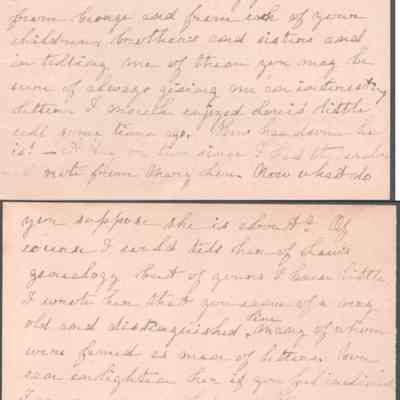 from George and from each of your
children, brothers and sisters and
in telling me of them you may be
sure of always giving me an interesting
letter. I much enjoyed Lewis' little
call some time ago. How handsome he
is! — time since I had the
note from Mary her. Now what do
you suppose she is about? Of
course I could tell her of Lewis
genealogy but of yours I knew little
I wrote her that you came of a very
old and distinguished line, many of whom
were famed as men of letters. You
can enlighten her if you feel inclined